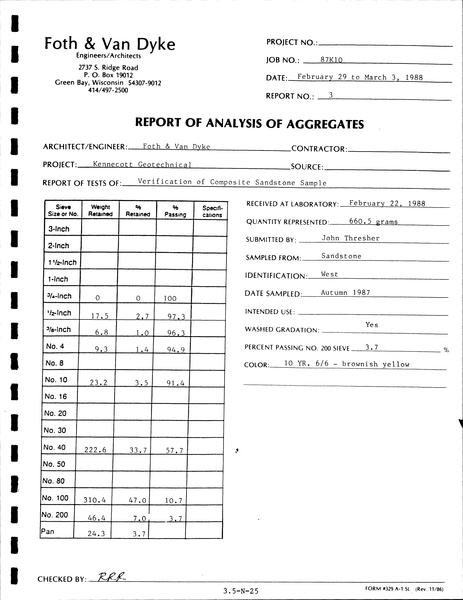 Foth & Van Dyke
Engineers/Architects
2737 S. Ridge Road
P. O. Box 19012
Green Bay, Wisconsin 54307-9012
414/497-2500
PROJECT NO.:
JOB NO.: 87K10
DATE: February 29 to March 3, 1988
REPORT NO.: 3
REPORT OF ANALYSIS OF AGGREGATES
ARCHITECT/ENGINEER: Foth & Van Dyke CONTRACTOR:
PROJECT: Kennecott Geotechnical SOURCE:
REPORT OF TESTS OF: Verification of Composite Sandstone Sample
Sieve Size or No. Weight Retained % Retained % Passing Specifi-cations
3-Inch
2-Inch
1 1/2-Inch
1-Inch
3/4-Inch 0 0 100
1/2-Inch 17.5 2.7 97.3
3/8-Inch 6.8 1.0 96.3
No. 4 9.3 1.4 94.9
No. 8
No. 10 23.2 3.5 91.4
No. 16
No. 20
No. 30
No. 40 222.6 33.7 57.7
No. 50
No. 80
No. 100 310.4 47.0 10.7
No. 200 46.4 7.0 3.7
Pan 24.3 3.7
RECEIVED AT LABORATORY: February 22, 1988
QUANTITY REPRESENTED: 660.5 grams
SUBMITTED BY: John Thresher
SAMPLED FROM: Sandstone
IDENTIFICATION: West
DATE SAMPLED: Autumn 1987
INTENDED USE:
WASHED GRADATION: Yes
PERCENT PASSING NO. 200 SIEVE 3.7 %
COLOR: 10 YR. 6/6 - brownish yellow
CHECKED BY: RRR
3.5-N-25
FORM #329 A-1 SL (Rev. 11/86)